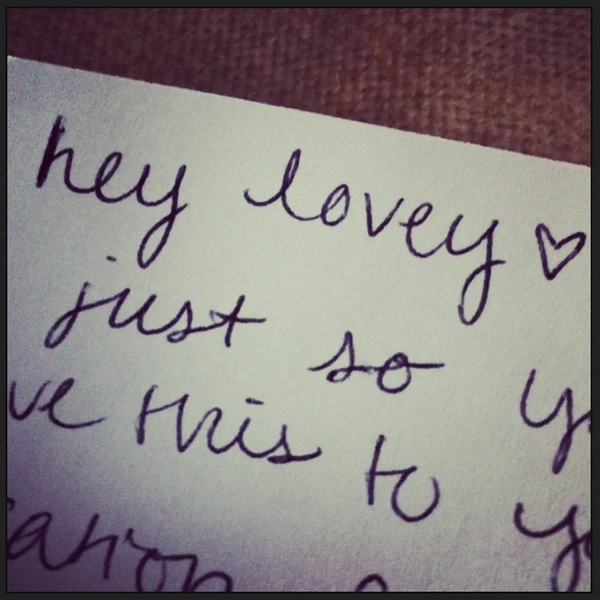 hey lovey ♡
just so y
ve this to y
ation